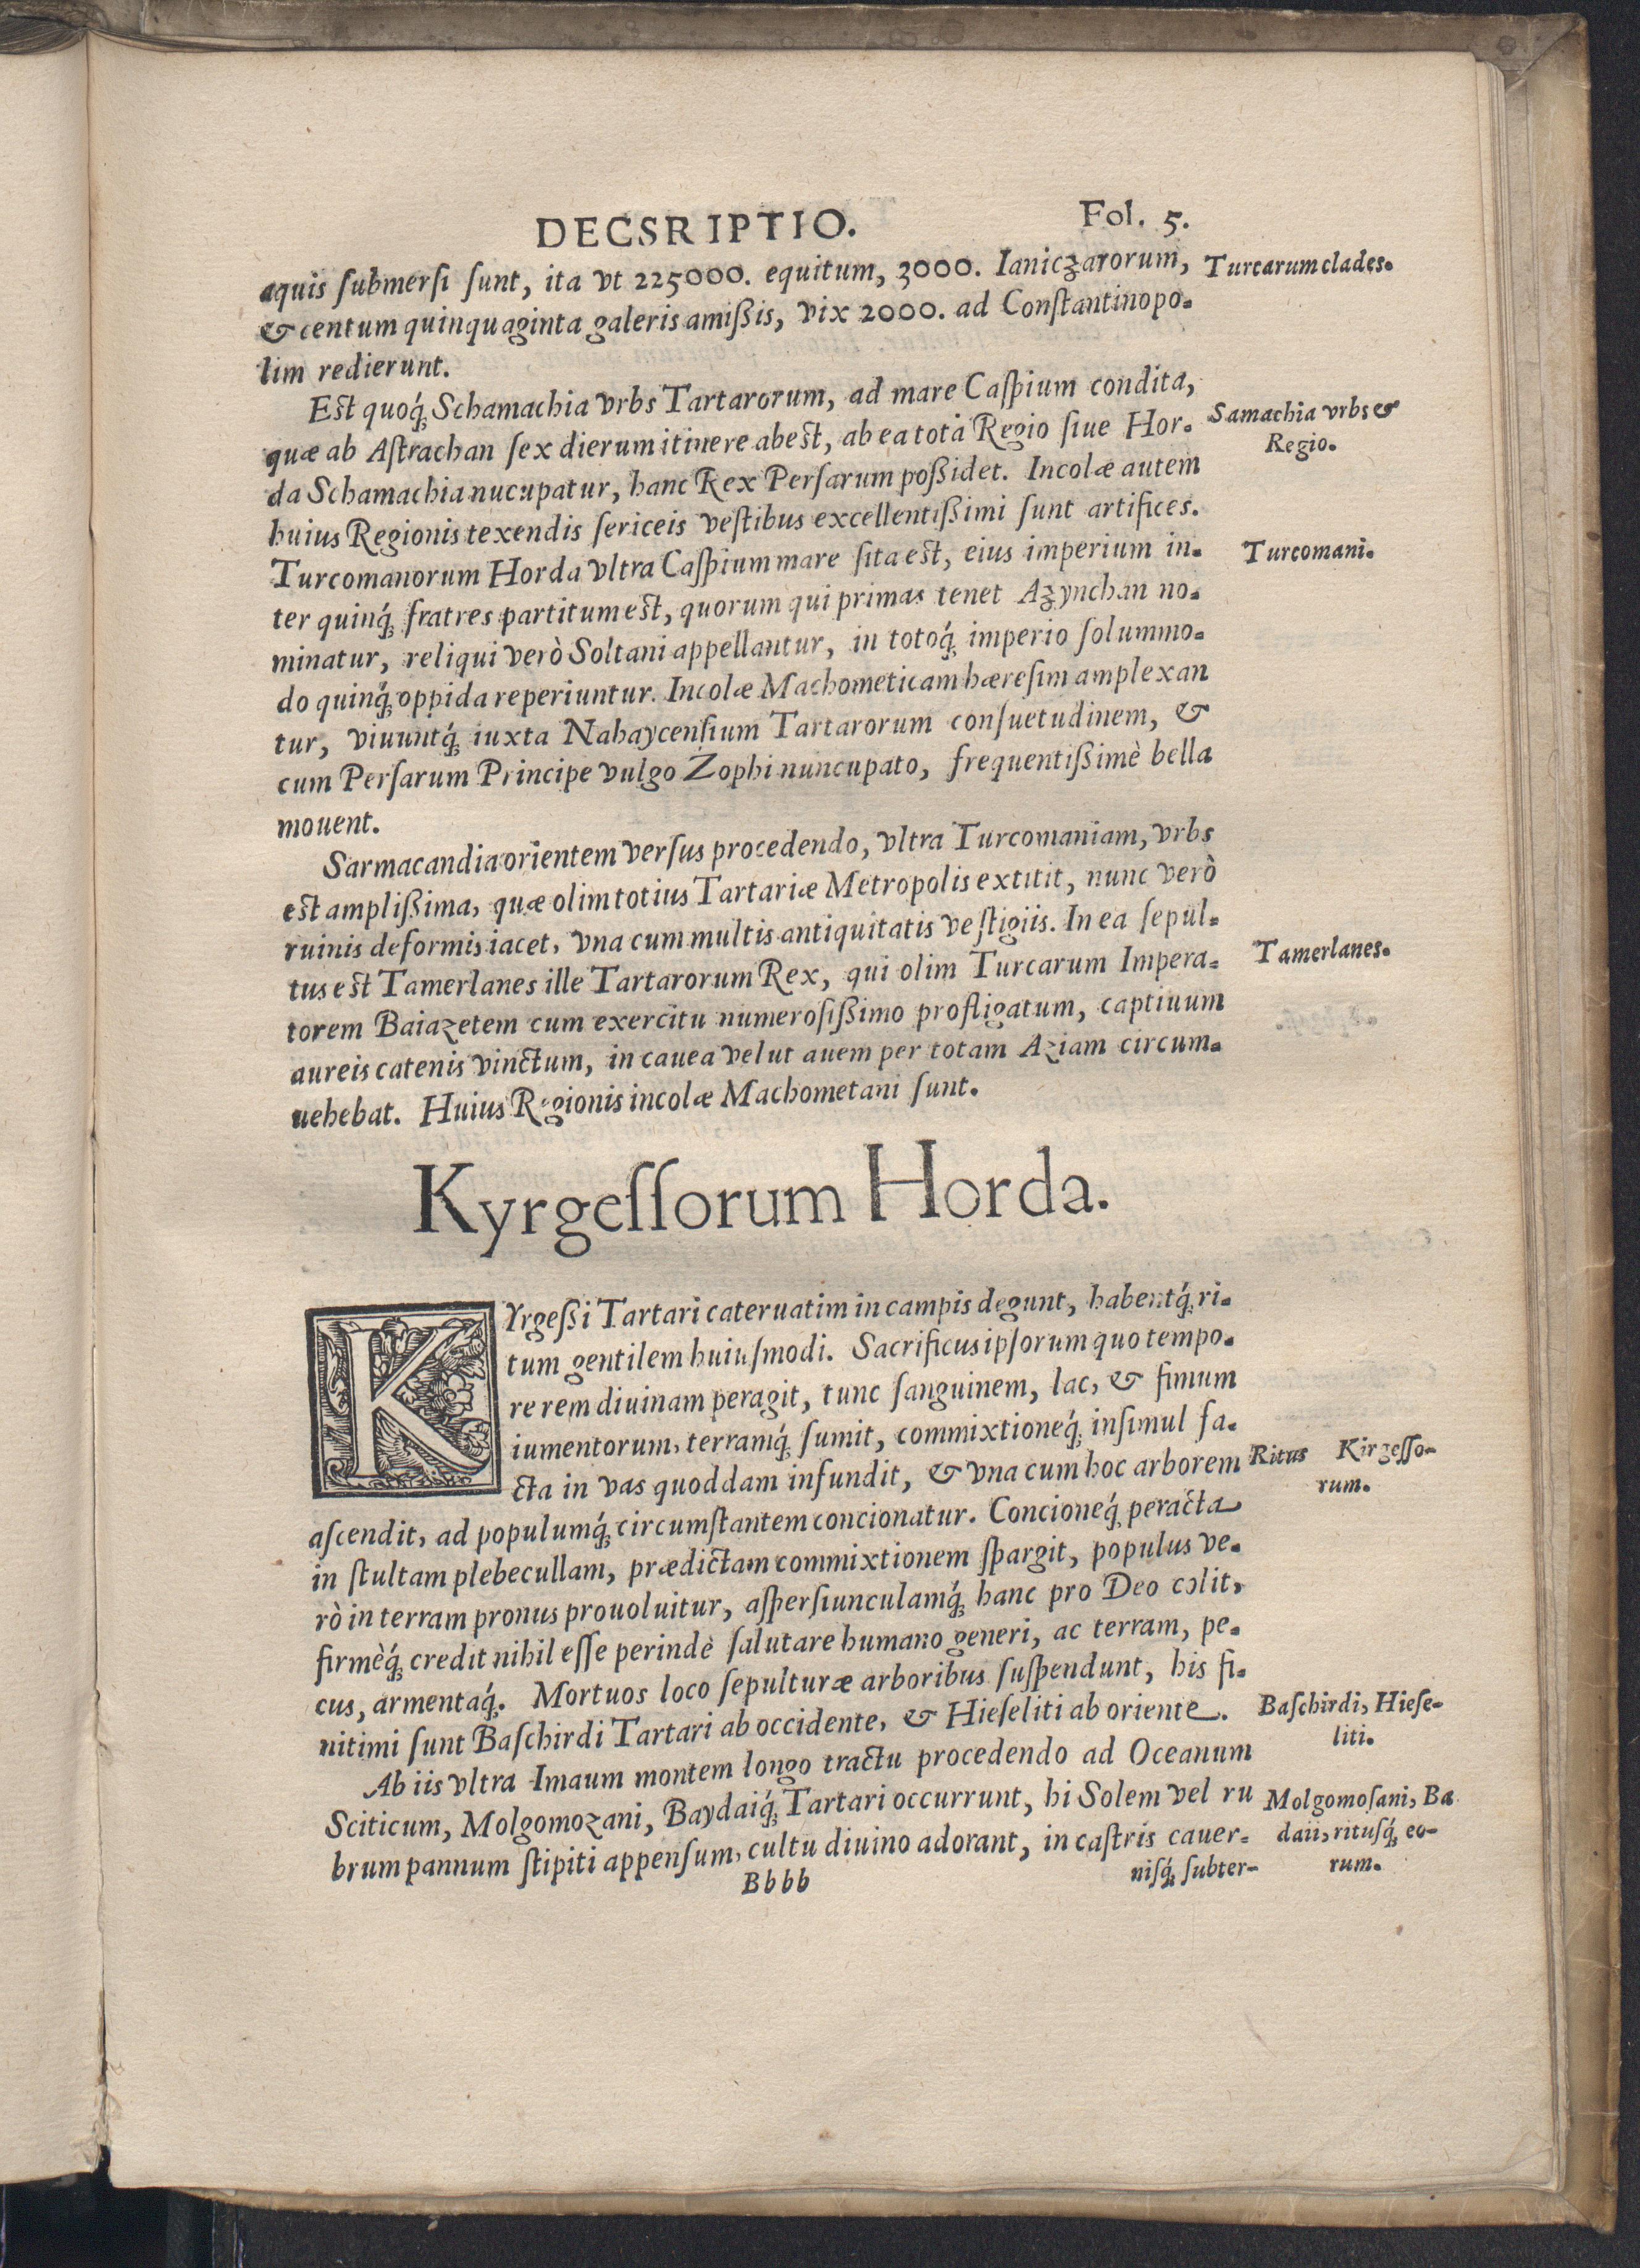 DECSRIPTIO.
Fol. 5.
aquis ſubmerſi ſunt, ita vt 225000. equitum, 3000. Ianiczarorum,
Turcarum clades.
& centum quinquaginta galeris amißis, vix 2000. ad Conſtantinopo-
lim redierunt.
Est quoq́; Schamachia vrbs Tartarorum, ad mare Caſpium condita,
quæ ab Aſtrachan ſex dierum itinere abest, ab ea tota Regio ſiue Hor-
Samachia vrbs &
Regio.
da Schamachia nucupatur, hanc Rex Perſarum poßidet. Incolæ autem
huius Regionis texendis ſericeis veſtibus excellentißimi ſunt artifices.
Turcomanorum Horda vltra Caſpium mare ſita est, eius imperium in-
Turcomani.
ter quinq́; fratres partitum est, quorum qui primas tenet Azynchan no-
minatur, reliqui verò Soltani appellantur, in totoq́; imperio ſolummo-
do quinq́; oppida reperiuntur. Incolæ Machometicam hæreſim amplexan
tur, viuuntq́; iuxta Nahaycenſium Tartarorum conſuetudinem, &
cum Perſarum Principe vulgo Zophi nuncupato, frequentißimè bella
mouent.
Sarmacandia orientem verſus procedendo, vltra Turcomaniam, vrbs
est amplißima, quæ olim totius Tartariæ Metropolis extitit, nunc verò
ruinis deformis iacet, vna cum multis antiquitatis veſtigiis. In ea ſepul-
tus est Tamerlanes ille Tartarorum Rex, qui olim Turcarum Impera-
Tamerlanes.
torem Baiazetem cum exercitu numeroſißimo profligatum, captiuum
aureis catenis vinctum, in cauea velut auem per totam Aziam circum-
uehebat. Huius Regionis incolæ Machometani ſunt.
Kyrgeſſorum Horda.
KYrgeßi Tartari cateruatim in campis degunt, habentq́; ri-
tum gentilem huiuſmodi. Sacrificus ipſorum quo tempo-
re rem diuinam peragit, tunc ſanguinem, lac, & fimum
iumentorum, terramq́; ſumit, commixtioneq́; inſimul fa-
cta in vas quoddam infundit, & vna cum hoc arborem
Ritus Kirgeſſo-
rum.
aſcendit, ad populumq́; circumſtantem concionatur. Concioneq́; peracta
in ſtultam plebecullam, prædictam commixtionem ſpargit, populus ve-
rò in terram pronus prouoluitur, aſperſiunculamq́; hanc pro Deo colit,
firmèq́; credit nihil eſſe perindè ſalutare humano generi, ac terram, pe-
cus, armentaq́;. Mortuos loco ſepulturæ arboribus ſuſpendunt, his fi-
nitimi ſunt Baſchirdi Tartari ab occidente, & Hieſeliti ab oriente.
Baſchirdi, Hieſe-
liti.
Ab iis vltra Imaum montem longo tractu procedendo ad Oceanum
Sciticum, Molgomozani, Baydaiq́; Tartari occurrunt, hi Solem vel ru
Molgomoſani, Ba
daii, rituſq́; eo-
rum.
brum pannum ſtipiti appenſum, cultu diuino adorant, in caſtris cauer-
Bbbb
niſq́; ſubter-